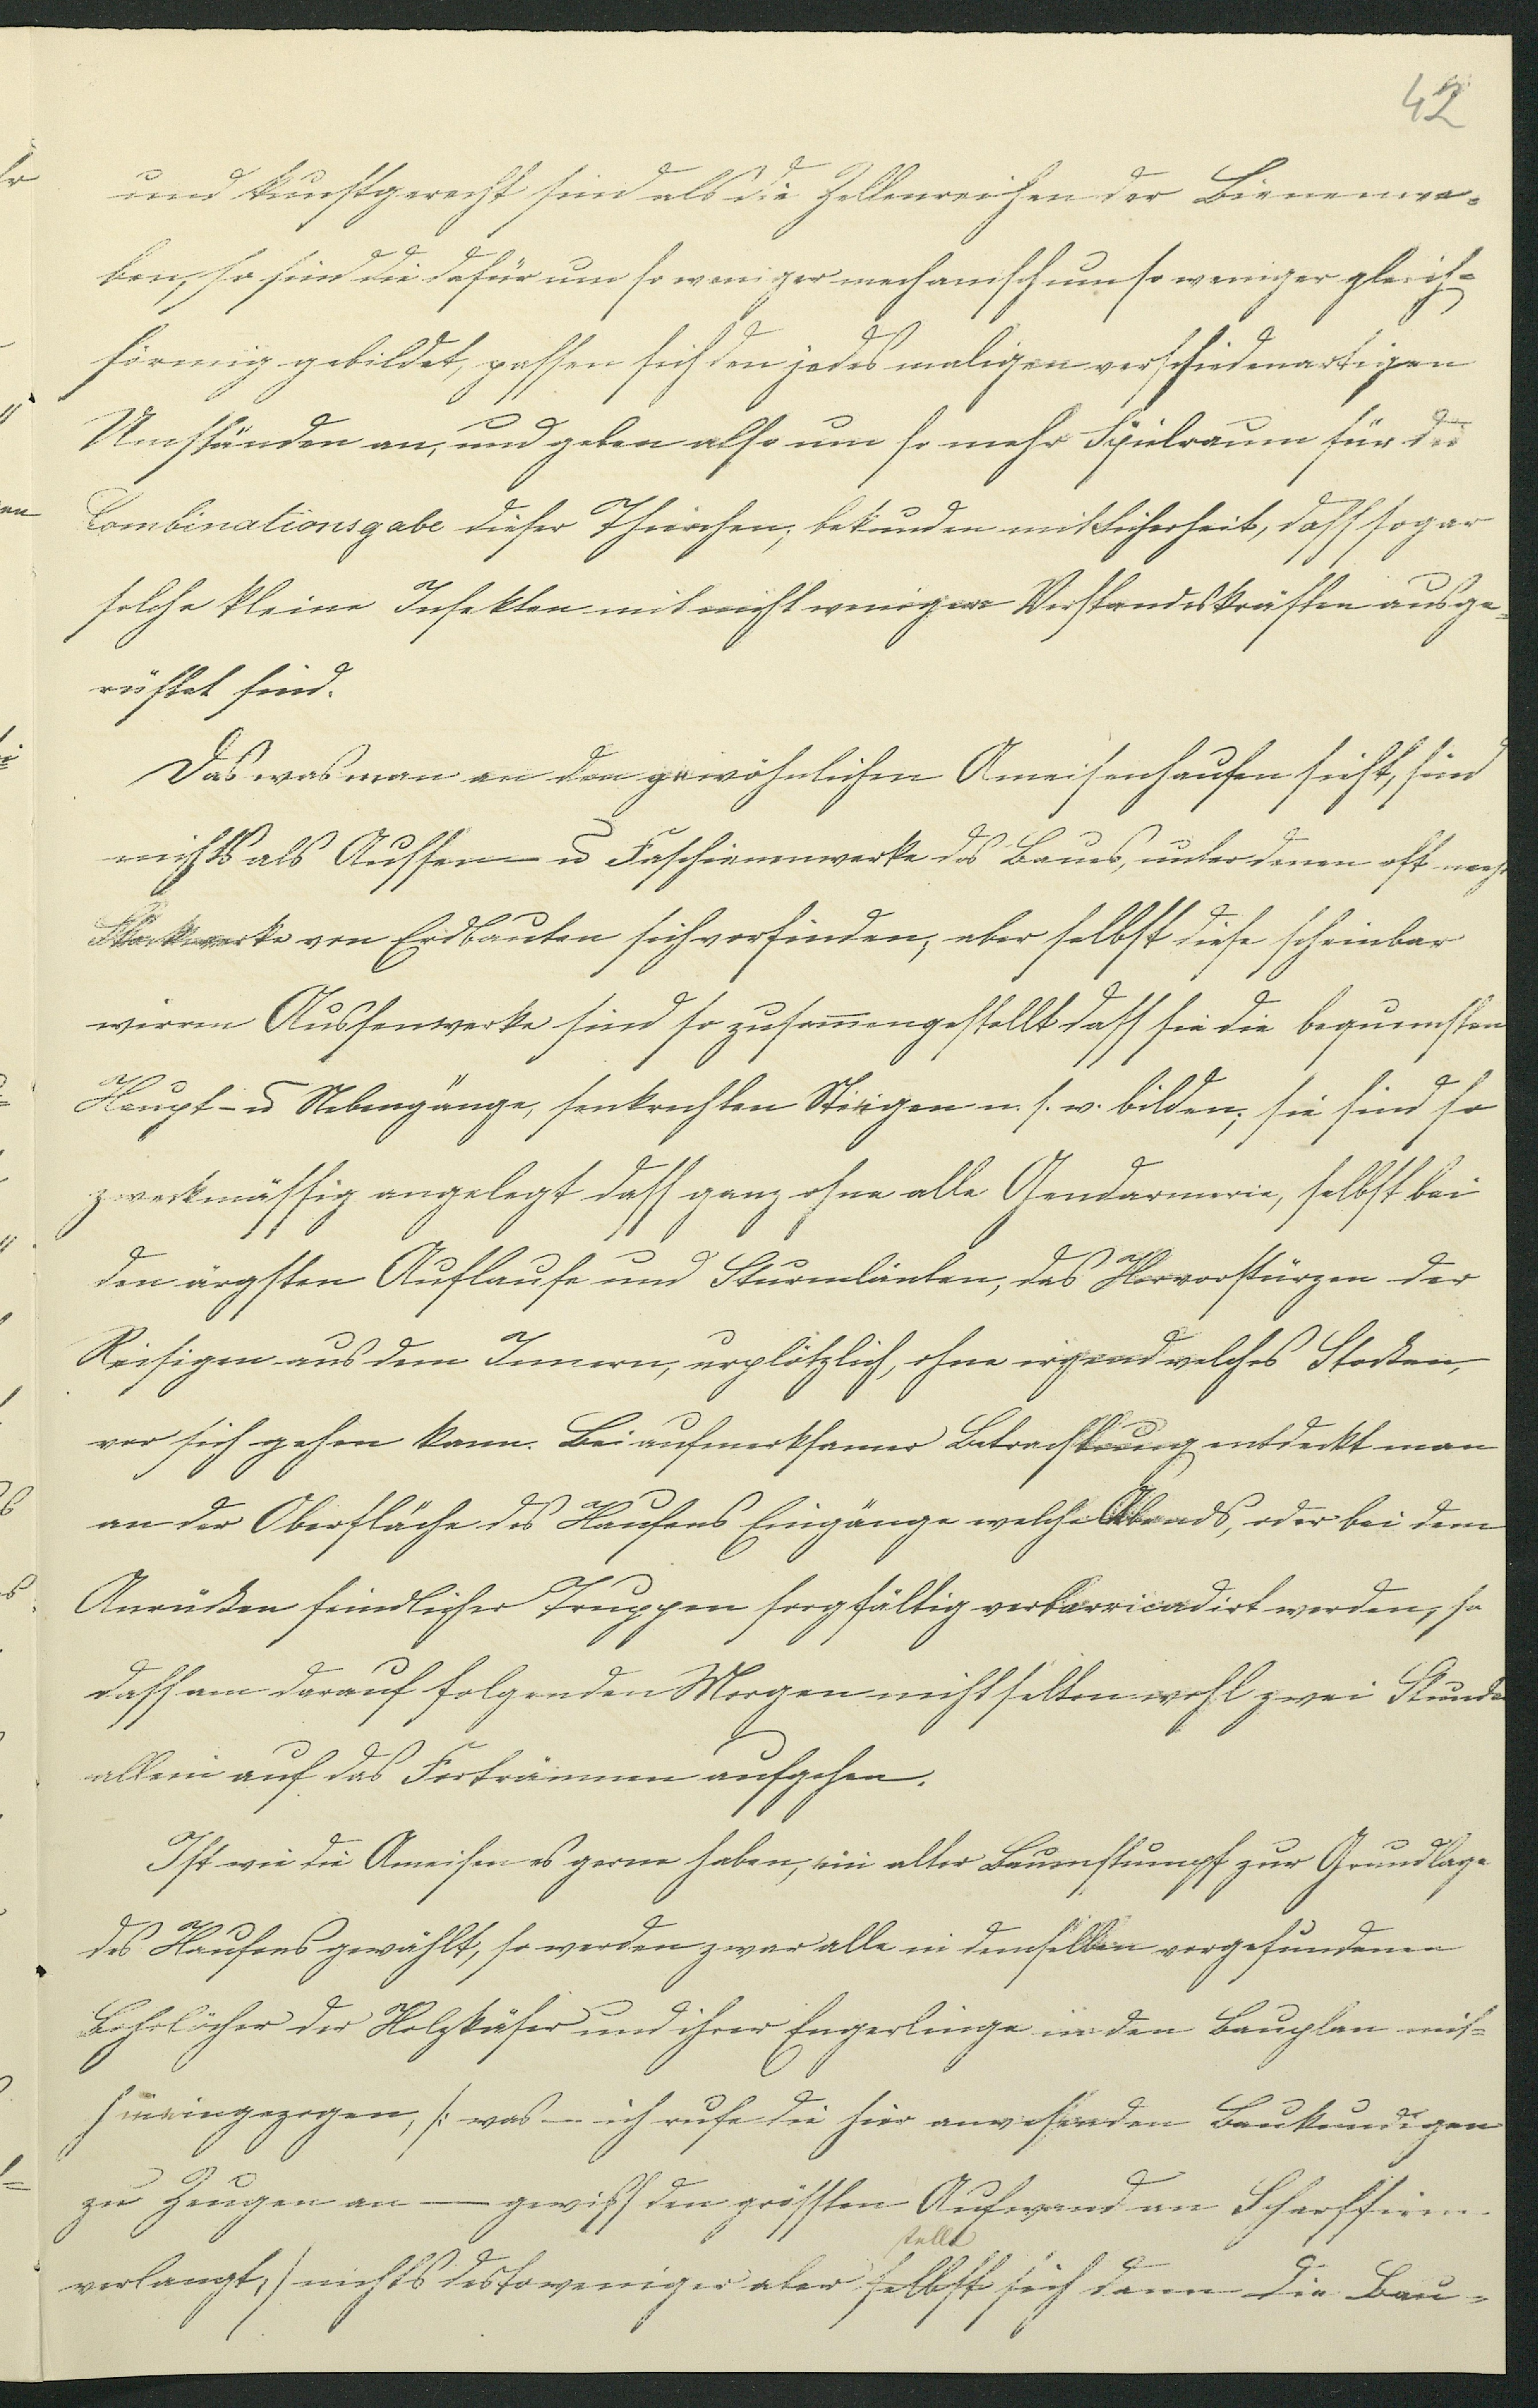 42
und kunstgerecht sind als die Zellenreihen der Bienenwa-
ben, so sind die dafür um so weniger mechanisch um so weniger gleich-
förmig gebildet, passen sich den jedes maligen verschiedenartigen
Umständen an, und geben also um so mehr Spielraum für die
Combinationsgabe dieser Thierchen; bekunden mit Sicherheit, dass sogar
solche kleine Insekten mit nicht weniger Verstandeskräften ausge-
rüstet sind.
Das was man an den gewöhnlichen Ameisenhaufen sieht, sind
nichts als Aussen- u Faschienenwerke des Baues, unter denen oft mehr
Stockwerke von Erdbauten sich vorfinden, aber selbst diese scheinbar
wirren Aussenwerke sind so zusammengestellt dass sie die bequemsten
Haupt- u Nebengänge, senkrechten Stiegen u. s. w. bilden; sie sind so
zweckmässig angelegt dass ganz ohne alle Gendarmerie, selbst bei
den ärgsten Auflaufe und Sturmläuten, das Hervorstürzen der
Reisigen aus dem Innern, urplötzlich, ohne irgend welches Stocken,
vor sich gehen kann. Bei aufmerksamer Betrachtung entdeckt man
an der Oberfläche des Haufens Eingänge welche Abends, oder bei dem
Anrücken feindlicher Truppen sorgfältig verbarricadirt werden, so
dass am darauf folgenden Morgen nicht selten wohl zwei Stunde
allein auf das Forträumen aufgehen.
Ist wie die Ameisen es gerne haben, ein alter Baumstumpf zur Grundlage
des Haufens gewählt, so werden zwar alle in demselben vorgefundenen
Bohrlöcher der Holzkäfer und ihrer Engerlinge in den Bauplan mit-
hineingezogen, /: was — ich rufe die hier anwesenden Baukundigen
zu Zeugen an — gewiss den grössten Aufwand an Scharfsinn
verlangt,/ nichts destoweniger aber selbst stellt sich dann die Bau-